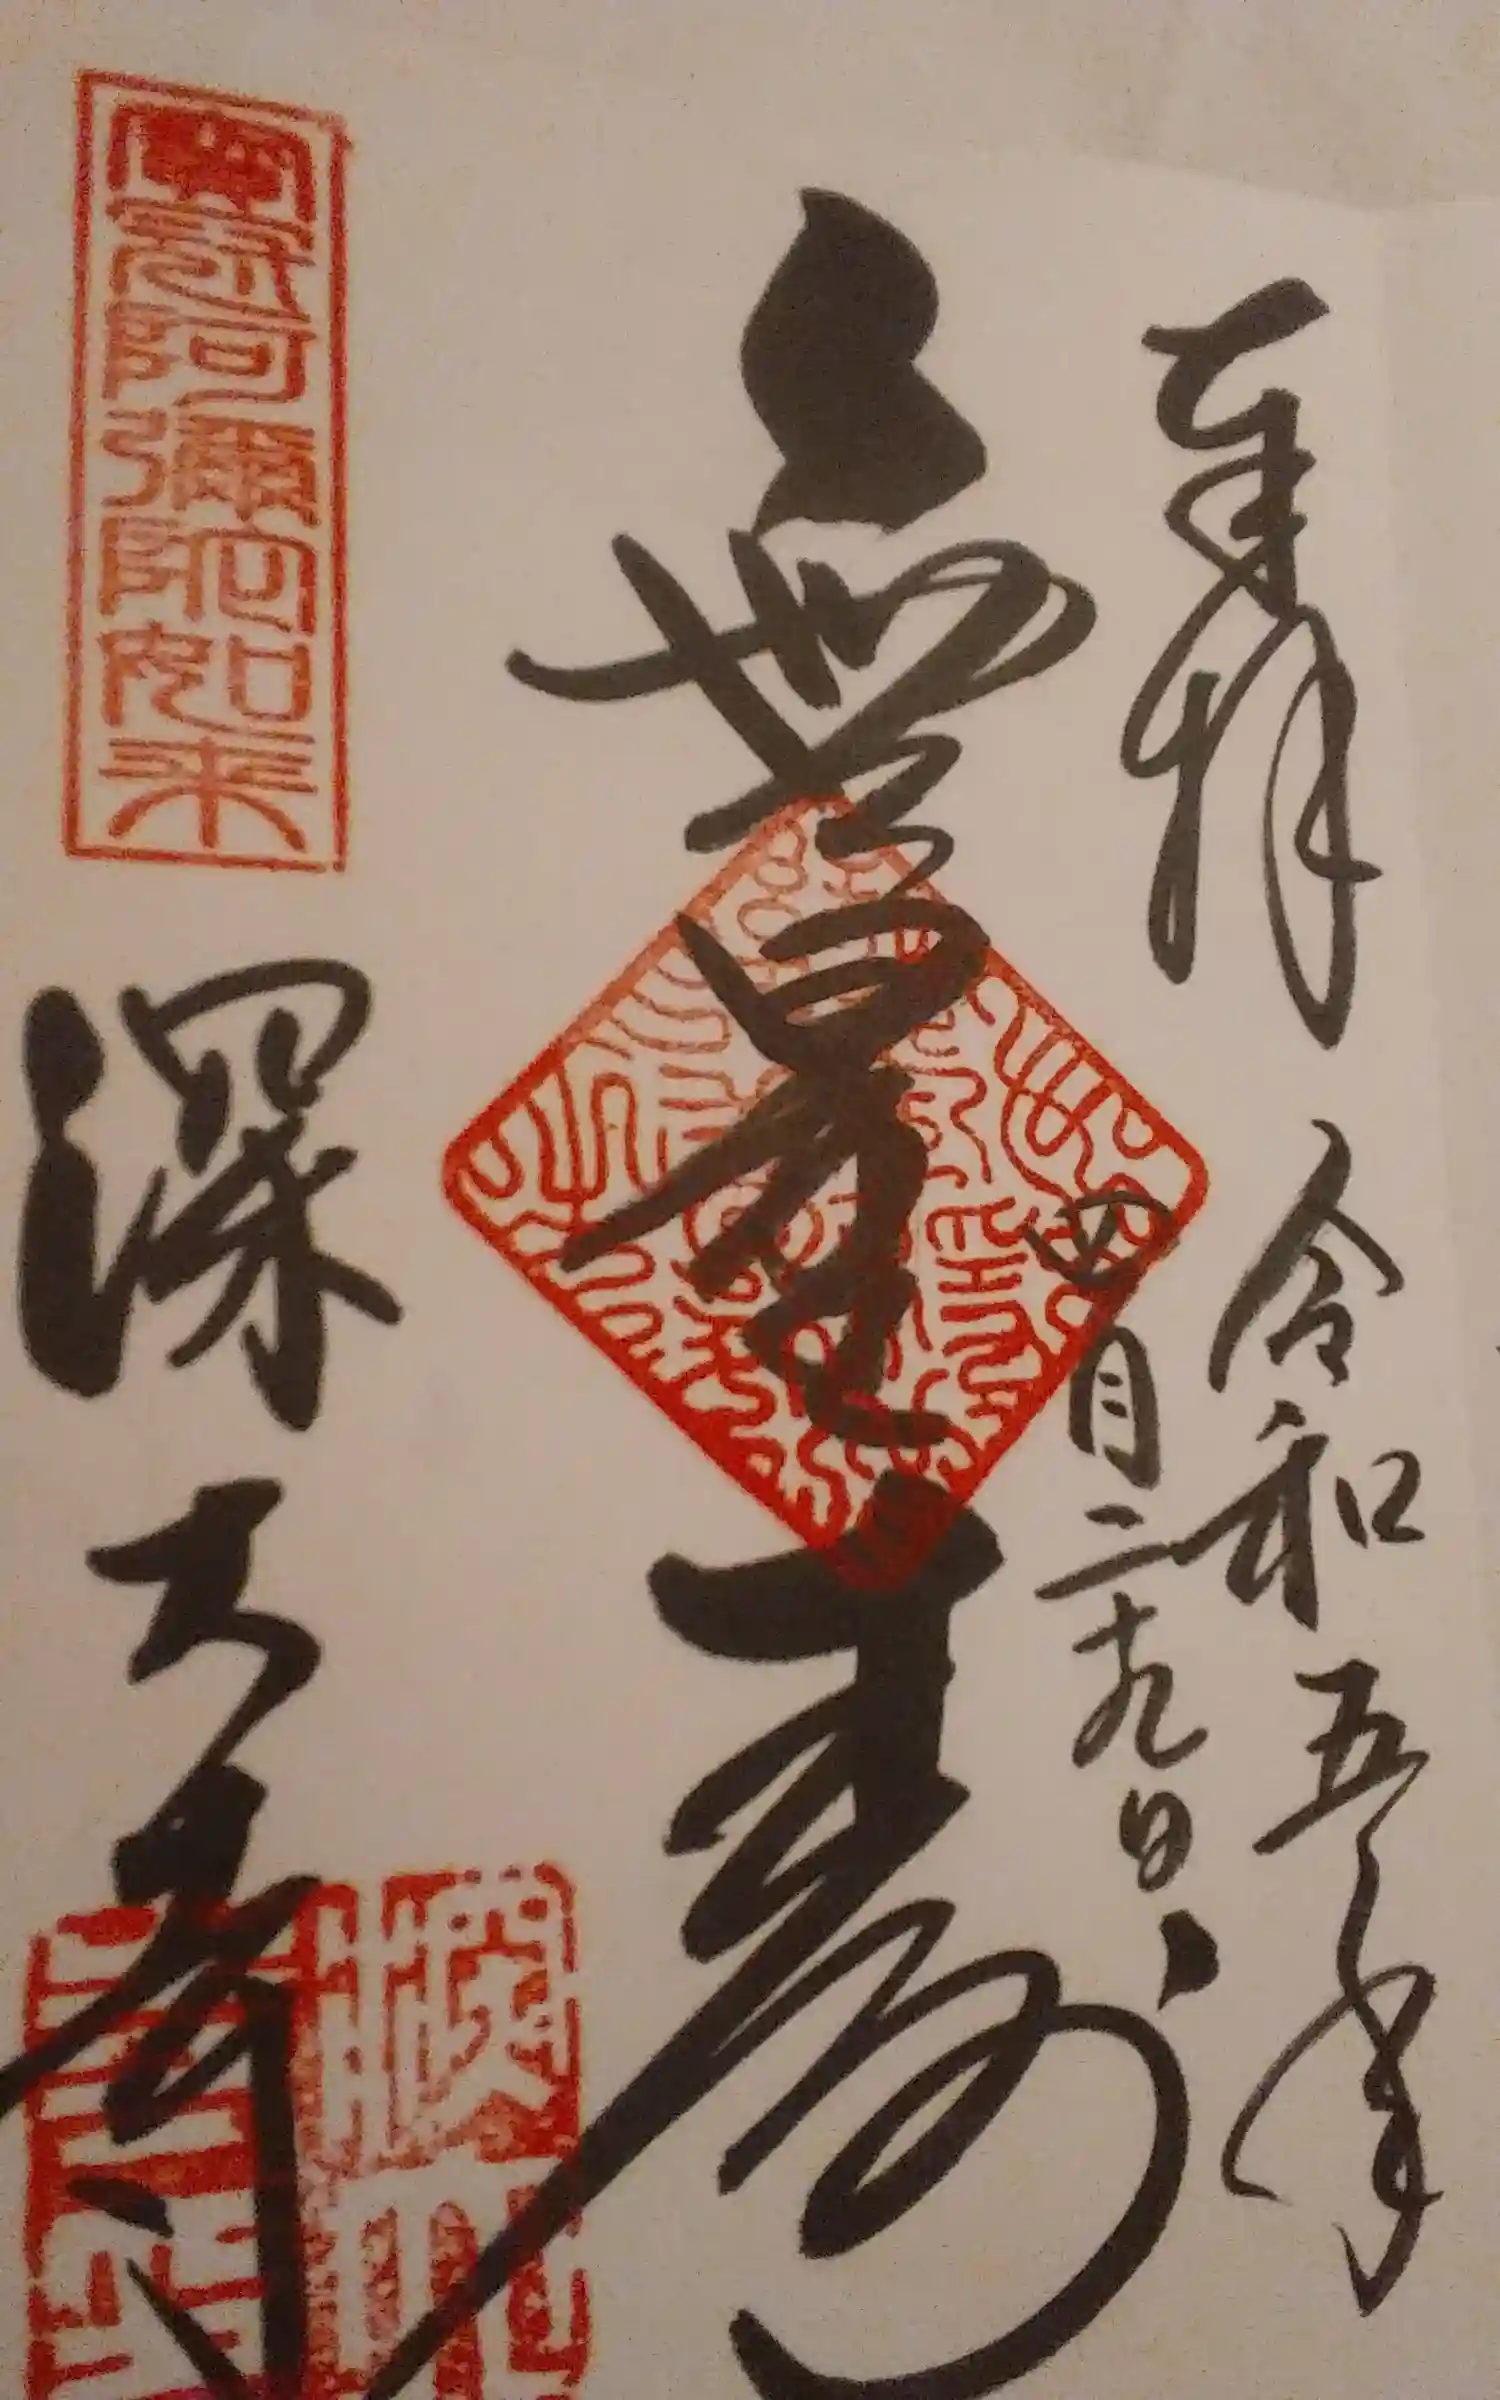 奉拝
令和五年
四月二十九日
無量寿
宝冠阿彌陀如来
深大寺